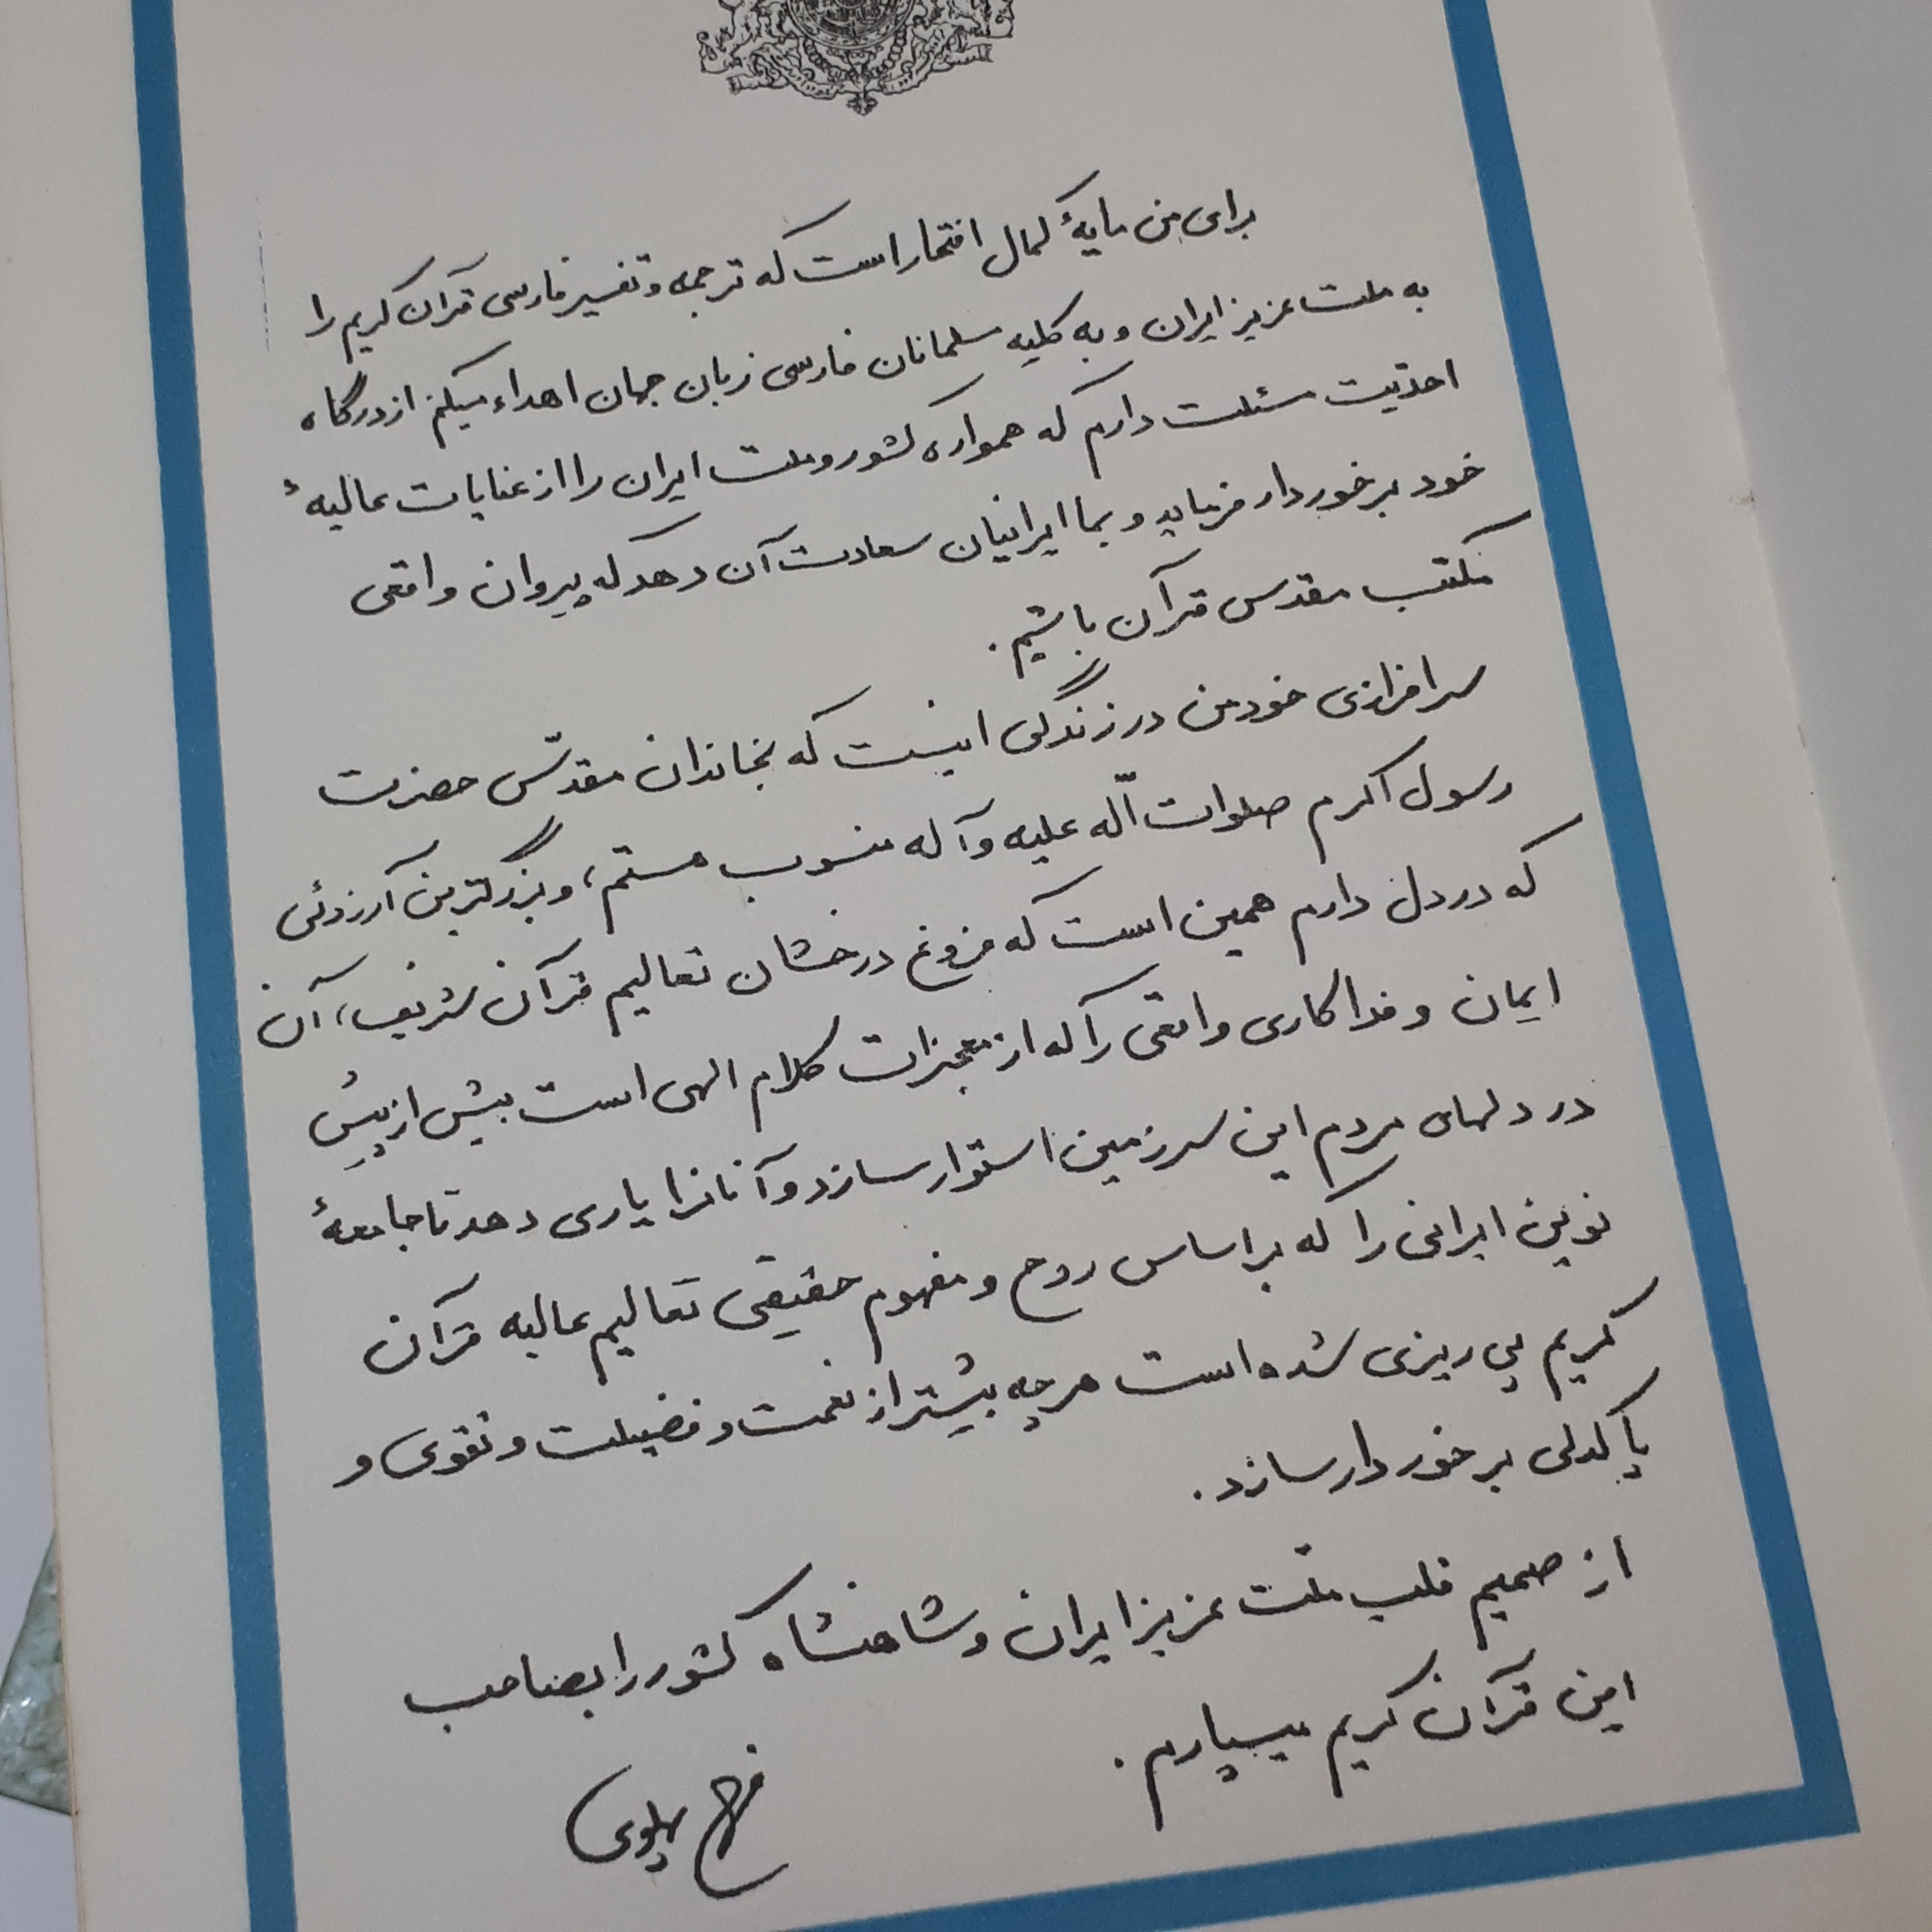 برای من مایهٔ کمال افتخار است که ترجمه و تفسیر فارسی قرآن کریم را
به ملت عزیز ایران و به کلیه مسلمانان فارسی زبان جهان اهداء میکنم از درگاه
احدیت مسئلت دارم که همواره کشور و ملت ایران را از عنایات عالیهٔ
خود برخوردار فرماید و بما ایرانیان سعادت آن دهد که پیروان واقعی
مکتب مقدس قرآن باشیم.
سرافرازی خود من در زندگی اینست که بخاندان مقدّس حضرت
رسول اکرم صلوات اللّه علیه و آله منسوب هستم، و بزرگترین آرزوئی
که در دل دارم همین است که فروغ درخشان تعالیم قرآن شریف، آن
ایمان و فداکاری واقعی را که از معجزات کلام الهی است بیش از پیش
در دلهای مردم این سرزمین استوار سازد و آنانرا یاری دهد تا جامعهٔ
نوین ایرانی را که بر اساس روح و مفهوم حقیقی تعالیم عالیه قرآن
کریم پی ریزی شده است هر چه بیشتر از نعمت و فضیلت و تقوی و
پاکدلی برخوردار سازد.
از صمیم قلب ملّت عزیز ایران و شاهنشاه کشور را بصاحب
این قرآن کریم میسپارم.
فرح پهلوی